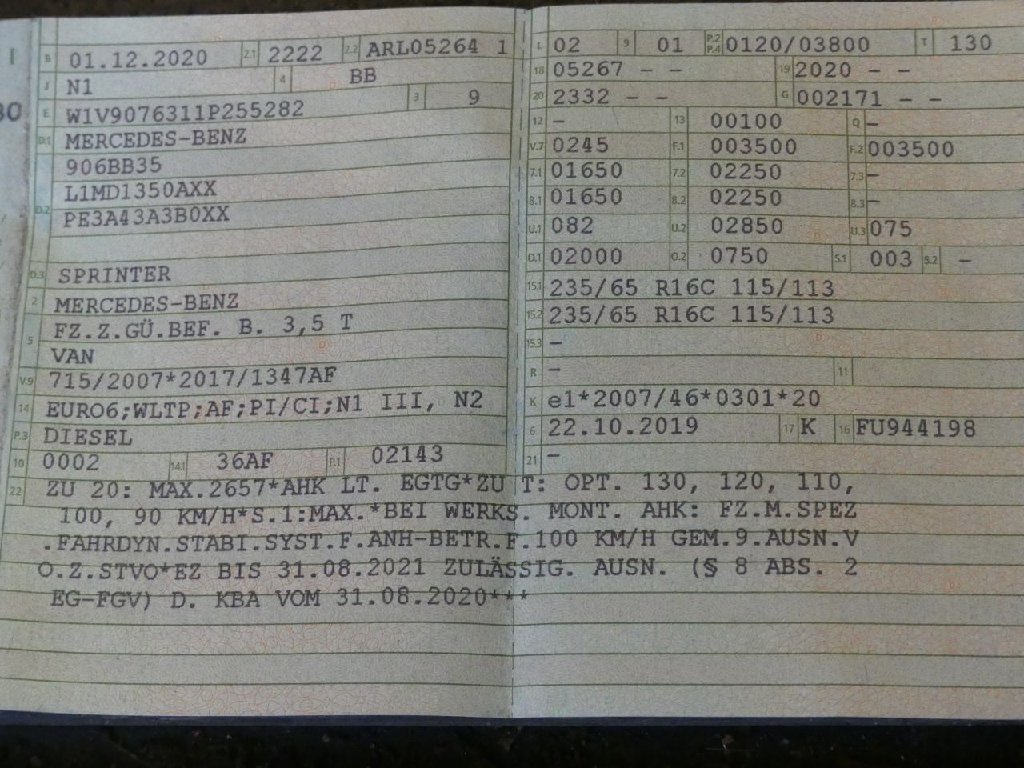 B 01.12.2020 2.1 2222 2.2 ARL05264 1
J N1 4 BB
E W1V9076311P255282 3 9
D.1 MERCEDES-BENZ
906BB35
D.2 L1MD1350AXX
PE3A43A3B0XX
D.3 SPRINTER
2 MERCEDES-BENZ
5 FZ.Z.GÜ.BEF. B. 3,5 T
VAN
V.9 715/2007*2017/1347AF
14 EURO6;WLTP;AF;PI/CI;N1 III, N2
P.3 DIESEL
10 0002 14.1 36AF P.1 02143
L 02 9 01 P.2 P.4 0120/03800 T 130
18 05267 – – 19 2020 – –
20 2332 – – G 002171 – –
12 – 13 00100 Q –
V.7 0245 F.1 003500 F.2 003500
7.1 01650 7.2 02250 7.3 –
8.1 01650 8.2 02250 8.3 –
U.1 082 U.2 02850 U.3 075
O.1 02000 O.2 0750 S.1 003 S.2 –
15.1 235/65 R16C 115/113
15.2 235/65 R16C 115/113
15.3 –
R – 11
K e1*2007/46*0301*20
6 22.10.2019 17 K 16 FU944198
21 –
22 ZU 20: MAX.2657*AHK LT. EGTG*ZU T: OPT. 130, 120, 110,
100, 90 KM/H*S.1:MAX.*BEI WERKS. MONT. AHK: FZ.M.SPEZ
.FAHRDYN.STABI.SYST.F.ANH-BETR.F.100 KM/H GEM.9.AUSN.V
O.Z.STVO*EZ BIS 31.08.2021 ZULÄSSIG. AUSN. (§ 8 ABS. 2
EG-FGV) D. KBA VOM 31.08.2020***